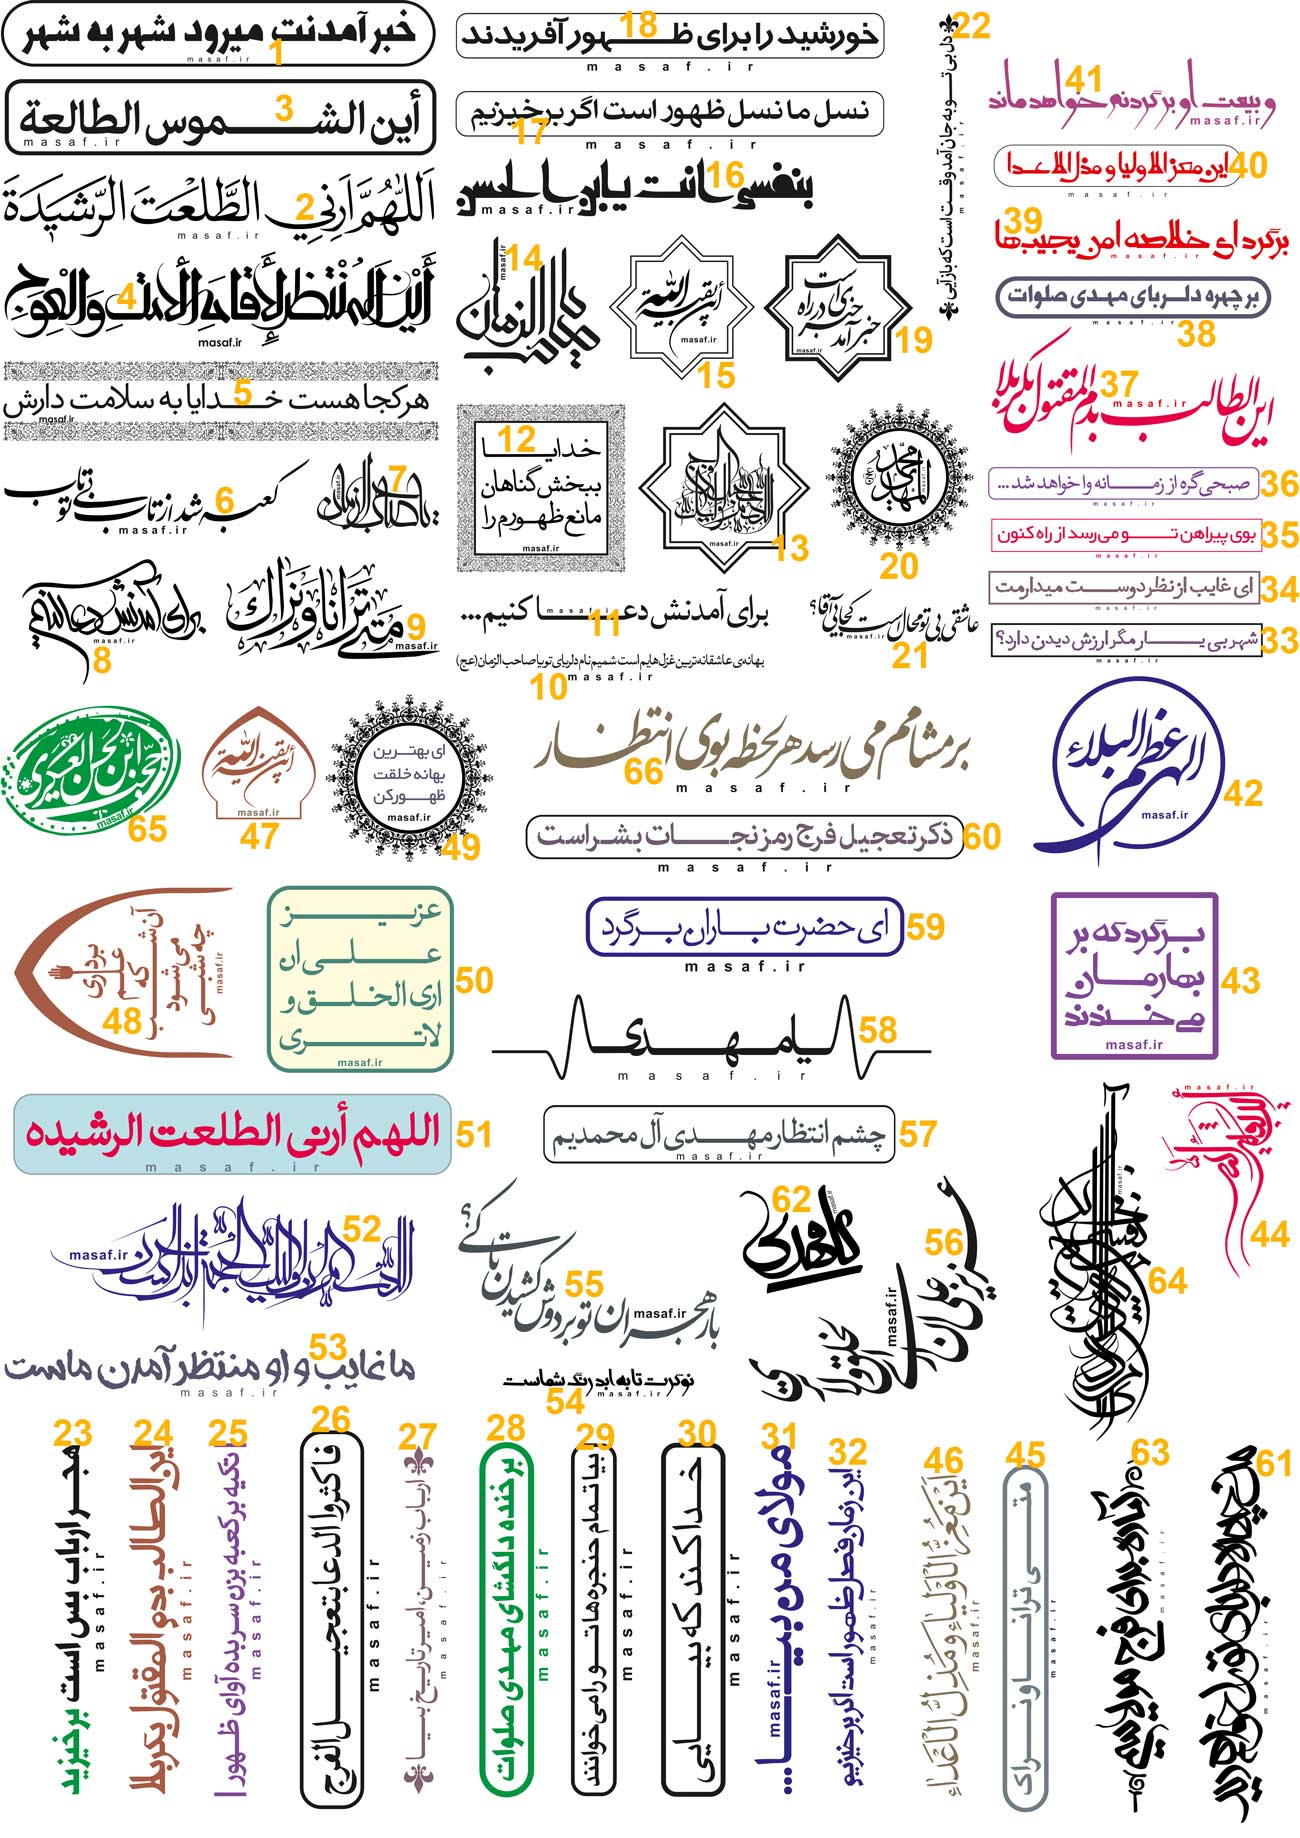 خبر آمدنت میرود شهر به شهر
masaf.ir
1
خورشید را برای ظهور آفریدند
18
masaf.ir
دل بی تو به جان آمد وقت است که بازآیی
22
masaf.ir
أین الشموس الطالعة
3
masaf.ir
نسل ما نسل ظهور است اگر برخیزیم
17
masaf.ir
و بیعت او بر گردنم خواهد ماند
41
masaf.ir
اَللّهُمَّ اَرِنِي الطَّلْعَتَ الرَّشیدَة
2
masaf.ir
بنفسی انت یابن الحسن
16
masaf.ir
این معز الاولیا و مذل الاعدا
40
masaf.ir
برگرد ای خلاصه امن یجیب‌ها
39
masaf.ir
أَیْنَ الْمُنْتَظَرُ لِأِقامَةِ الْأَمْتِ وَ الْعِوَجِ
4
masaf.ir
14
masaf.ir
أین بقیت الله
15
masaf.ir
خبر آمد خبری در راه است
19
masaf.ir
بر چهره دلربای مهدی صلوات
38
masaf.ir
این الطالب بدم المقتول بکربلا
37
masaf.ir
هرکجا هست خدایا به سلامت دارش
5
masaf.ir
خدایا
ببخش گناهان
مانع ظهورم را
12
masaf.ir
13
masaf.ir
محمد المهدی
20
کعبه شد از تاب تو بی تاب
6
masaf.ir
یا صاحب الزمان
7
masaf.ir
صبحی گره از زمانه وا خواهد شد ...
36
masaf.ir
بوی پیراهن تو می‌رسد از راه کنون
35
masaf.ir
ای غایب از نظر دوست میدارمت
34
masaf.ir
شهر بی یار مگر ارزش دیدن دارد؟
33
masaf.ir
برای آمدنش دعا کنیم
8
masaf.ir
مَتی تَرانا وَ نَراكَ
9
masaf.ir
برای آمدنش دعا کنیم...
11
masaf.ir
عاشقی بی تو محال است کجایی آقا؟
21
masaf.ir
بهانه‌ی عاشقانه‌ترین غزل‌هایم است شمیم نام دلربای تو یا صاحب الزمان (عج)
10
masaf.ir
الحجة ابن الحسن العسکری
65
masaf.ir
أین بقیت الله
47
masaf.ir
ای بهترین
بهانه خلقت
ظهور کن
49
masaf.ir
بر مشامم می رسد هر لحظه بوی انتظار
66
masaf.ir
الهی عظم البلاء
42
masaf.ir
ذکر تعجیل فرج رمز نجات بشر است
60
masaf.ir
چه شبی
می‌شود
آن شب
که علم
برداری
48
masaf.ir
عزیز
علی ان
اری الخلق و
لاتری
50
masaf.ir
ای حضرت باران برگرد
59
masaf.ir
برگرد که بر
بهارمان
می‌خندند
43
masaf.ir
یا مهدی
58
masaf.ir
اللهم أرنی الطلعت الرشیده
51
masaf.ir
چشم انتظار مهدی آل محمدیم
57
masaf.ir
44
masaf.ir
52
masaf.ir
بار هجران تو بر دوش کشیدن تا کی؟
55
masaf.ir
یا مهدی
62
masaf.ir
عزیز علی ان اری الخلق و لا تری
56
masaf.ir
64
masaf.ir
ما غایب و او منتظر آمدن ماست
53
masaf.ir
نوکرت تا به ابد رنگ شماست
54
masaf.ir
هجر ارباب بس است برخیزید
23
masaf.ir
این الطالب بدم المقتول بکربلا
24
masaf.ir
تکیه بر کعبه بزن سر بده آوای ظهور را
25
masaf.ir
فاکثروا الدعا بتعجیل الفرج
26
masaf.ir
ارباب زمین امیر تاریخ بیا
27
masaf.ir
بر خنده دلگشای مهدی صلوات
28
masaf.ir
بیا تمام حنجره‌ها تو را می‌خوانند
29
masaf.ir
خدا کند که بیایی
30
masaf.ir
مولای من بیا ...
31
masaf.ir
این زمان فصل ظهور است اگر برخیزیم
32
masaf.ir
أَیْنَ مُعِزُّ الْأَوْلِیاءِ وَ مُذِلُّ الْأَعْداءِ
46
masaf.ir
متی ترانا و نراک
45
masaf.ir
63
masaf.ir
61
masaf.ir